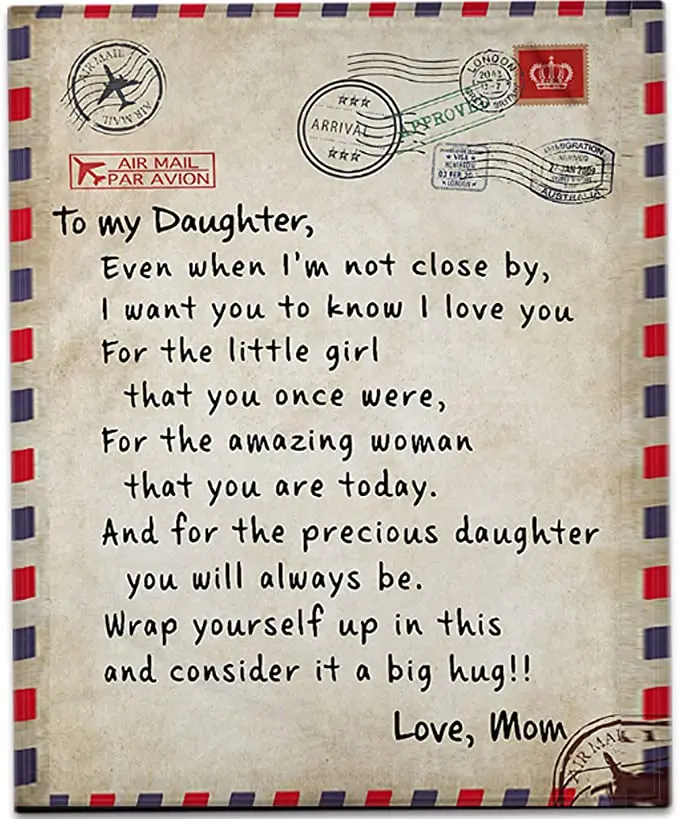 AIR MAIL
AIR MAIL
LONDON
GREAT BRITAIN
★★★
ARRIVAL
★★★
APPROVED
VISA
03 FEB 20
LONDON
IMMIGRATION
AUSTRALIA
AIR MAIL
PAR AVION
To my Daughter,
Even when I'm not close by,
I want you to know I love you
For the little girl
that you once were,
For the amazing woman
that you are today.
And for the precious daughter
you will always be.
Wrap yourself up in this
and consider it a big hug!!
Love, Mom
AIR MAIL